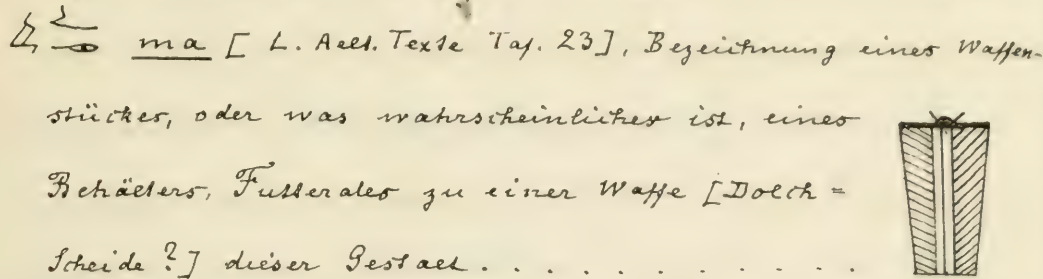 ma [L. Aelt. Texte Taf. 23], Bezeichnung eines Waffen-
stückes, oder was wahrscheinlicher ist, eines
Behälters, Futterales zu einer Waffe [Dolch=
Scheide?] dieser Gestalt . . . . . . . . . . . .